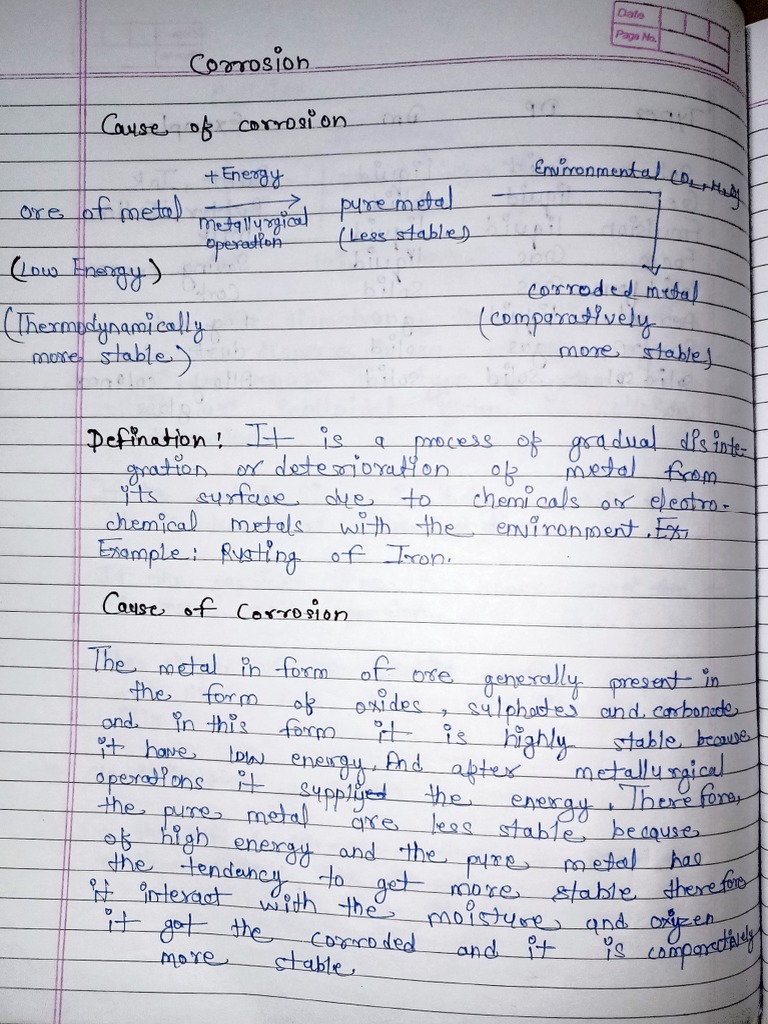 Date
Page No.
Corrosion
Cause of corrosion
+ Energy
Environmental (O2, H2O)
ore of metal → pure metal
Metallurgical
operation
(Less stable)
(Low Energy)
corroded metal
(Thermodynamically
more stable)
(comparatively
more stable)
Defination: It is a process of gradual disinte-
gration or deterioration of metal from
its surface due to chemicals or electro-
chemical metals with the environment. Ex.
Example: Rusting of Iron.
Cause of Corrosion
The metal in form of ore generally present in
the form of oxides, sulphates and carbonate
and in this form it is highly stable because
it have low energy. And after metallurgical
operations it supplyed the energy. Therefore,
the pure metal are less stable because
of high energy and the pure metal has
the tendancy to get more stable therefore
it interact with the moisture and oxizen
it got the corroded and it is comparatively
more stable